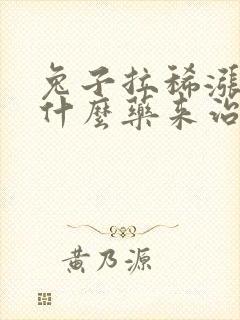 兔子拉稀漲
什麼藥来治
黄乃源